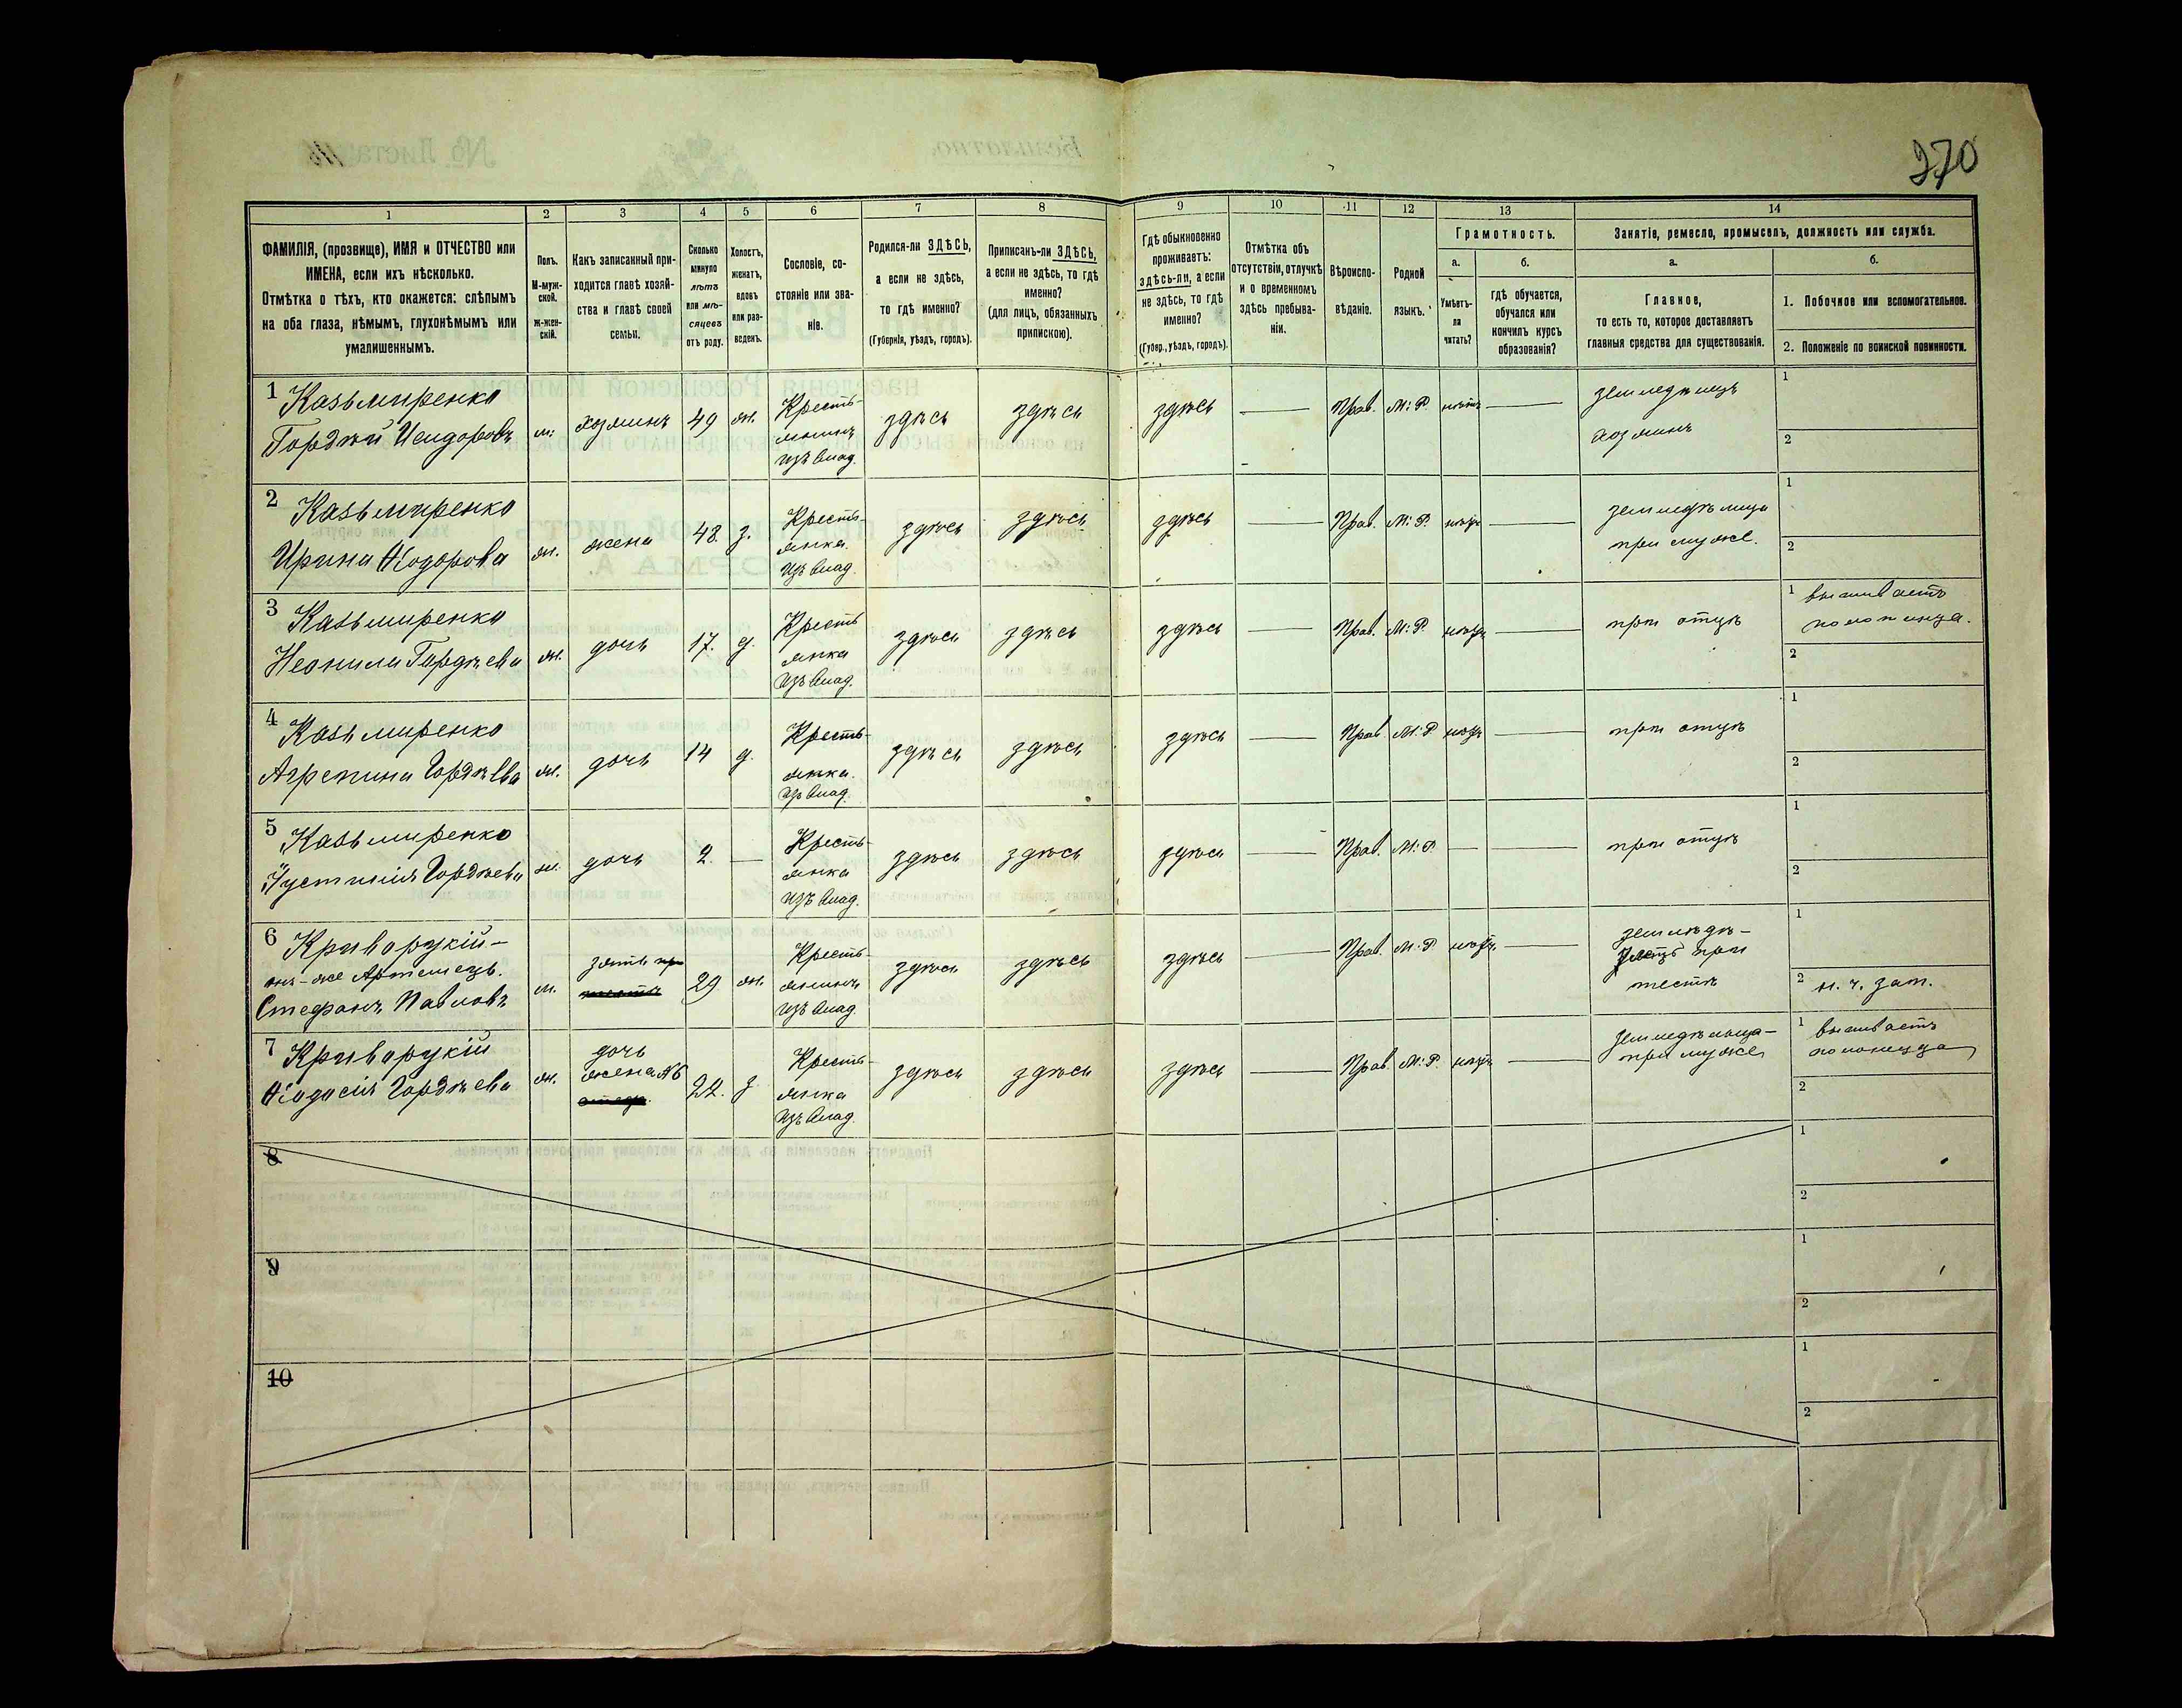 270
1
2
3
4
5
6
7
8
9
10
11
12
13
14
ФАМИЛІЯ, (прозвище), ИМЯ и ОТЧЕСТВО или
ИМЕНА, если ихъ нѣсколько.
Отмѣтка о тѣхъ, кто окажется: слѣпымъ
на оба глаза, нѣмымъ, глухонѣмымъ или
умалишеннымъ.
Полъ.
М-муж-
ской.
ж-жен-
скій.
Какъ записанный при-
ходится главѣ хозяй-
ства и главѣ своей
семьи.
Сколько
минуло
лѣтъ
или мѣ-
сяцевъ
отъ роду.
Холостъ,
женатъ,
вдовъ
или раз-
веденъ.
Сословіе, со-
стояніе или зва-
ніе.
Родился-ли ЗДѢСЬ,
а если не здѣсь,
то гдѣ именно?
(Губернія, уѣздъ, городъ).
Приписанъ-ли ЗДѢСЬ,
а если не здѣсь, то гдѣ
именно?
(для лицъ, обязанныхъ
припискою).
Гдѣ обыкновенно
проживаетъ:
здѣсь-ли, а если
не здѣсь, то гдѣ
именно?
(Губер., уѣздъ, городъ).
Отмѣтка объ
отсутствіи, отлучкѣ
и о временномъ
здѣсь пребыва-
ніи.
Вѣроиспо-
вѣданіе.
Родной
языкъ.
Грамотность.
а.
Умѣетъ-
ли
читать?
б.
гдѣ обучается,
обучался или
кончилъ курсъ
образованія?
Занятіе, ремесло, промыселъ, должность или служба.
а.
Главное,
то есть то, которое доставляетъ
главныя средства для существованія.
б.
1. Побочное или вспомогательное.
2. Положеніе по воинской повинности.
1 Казьмиренко
Гордѣй Исидоровъ
м.
хозяинъ
49
ж.
Кресть-
янинъ
изъ влад.
здѣсь
здѣсь
здѣсь
—
Прав.
М: Р.
нѣтъ
—
земледѣлецъ
хозяинъ
1
2
2 Казьмиренко
Ирина Ѳодорова
ж.
жена
48.
з.
Кресть-
янка.
изъ влад.
здѣсь
здѣсь
здѣсь
—
Прав.
М: Р.
нѣтъ
—
земледѣлица
при мужѣ.
1
2
3 Казьмиренко
Неонила Гордѣева
ж.
дочь
17.
д.
Кресть
янка
изъ влад.
здѣсь
здѣсь
здѣсь
—
Прав.
М: Р.
нѣтъ
—
при отцѣ
1 вышиваетъ
полотенца.
2
4 Казьмиренко
Агрепина Гордѣева
ж.
дочь
14
д.
Кресть-
янка.
изъ влад.
здѣсь
здѣсь
здѣсь
—
Прав.
М. Р.
нѣтъ
—
при отцѣ
1
2
5 Казьмиренко
Іустинія Гордѣева
ж.
дочь
2.
—
Кресть-
янка
изъ влад.
здѣсь
здѣсь
здѣсь
—
Прав.
М: Р.
—
—
при отцѣ
1
2
6 Криворукій-
онъ-же Артемецъ.
Стефанъ Павловъ
м.
зять
29
ж.
Кресть-
янинъ
изъ влад.
здѣсь
здѣсь
здѣсь
—
Прав.
М: Р
нѣтъ.
—
земледѣ-
лецъ при
тестѣ
1
2 н. ч. зап.
7 Криворукій
Ѳодосія Гордѣева
ж.
дочь
жена №6
22.
з
Кресть-
янка
изъ влад.
здѣсь
здѣсь
здѣсь
—
Прав.
М: Р.
нѣтъ
—
земледѣлица-
при мужѣ
1 вышиваетъ
полотенца
2
8
1
2
9
1
2
10
1
2